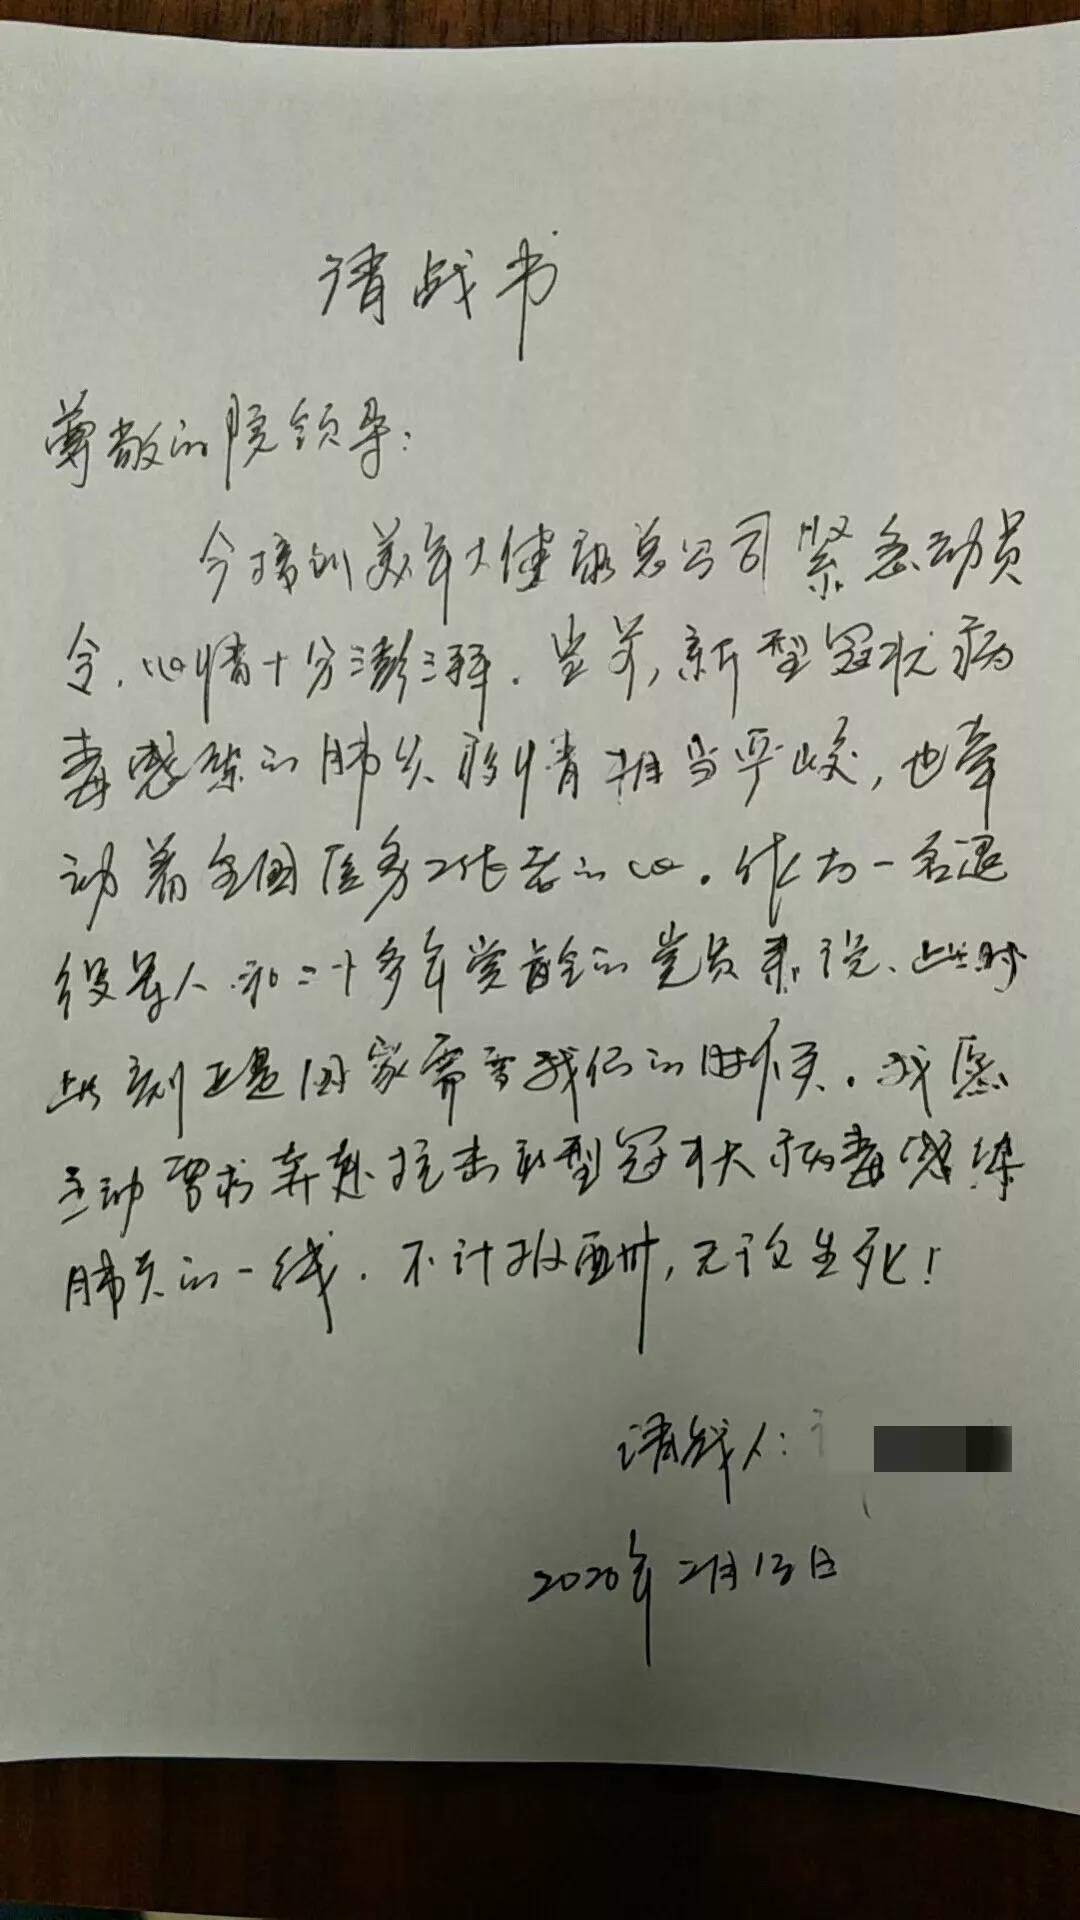 请战书
尊敬的院领导：
今接到美年大健康总公司紧急动员
令，心情十分澎湃。当前，新型冠状病
毒感染的肺炎疫情相当严峻，也牵
动着全国医务工作者的心。作为一名退
役军人和二十多年党龄的党员来说、此时
此刻正是国家需要我们的时候。我愿
主动要求奔赴抗击新型冠状病毒感染
肺炎的一线。不计报酬，无论生死！
请战人：
2020年2月13日